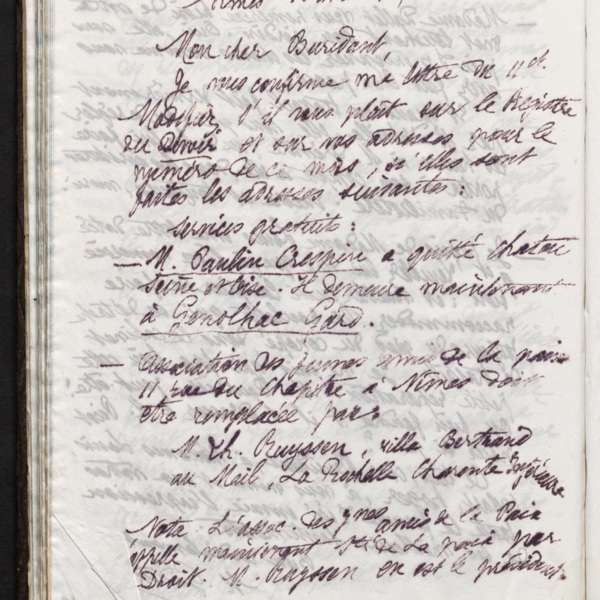 Mon cher Buridant,
Je vous confirme ma lettre du 11 ct.
Modifier, s'il vous plait sur le Registre
du Devoir et sur vos adresses pour le
numéro de ce mois, si elles sont
faites les adresses suivantes :
Services gratuits :
— M. Paulin Crespin a quitté Chatou
Seine et Oise. Il demeure maintenant
à Genolhac Gard.
— Association des jeunes amis de la paix
11 rue du Chapitre à Nîmes doit
être remplacée par
M. Th. Ruyssen, villa Bertrand
au Mail, La Rochelle Charente Inférieure
Nota L'assoc. des jnes amis de la Paix
appelle maintenant de La paix par
Droit. M. Ruyssen en est le président